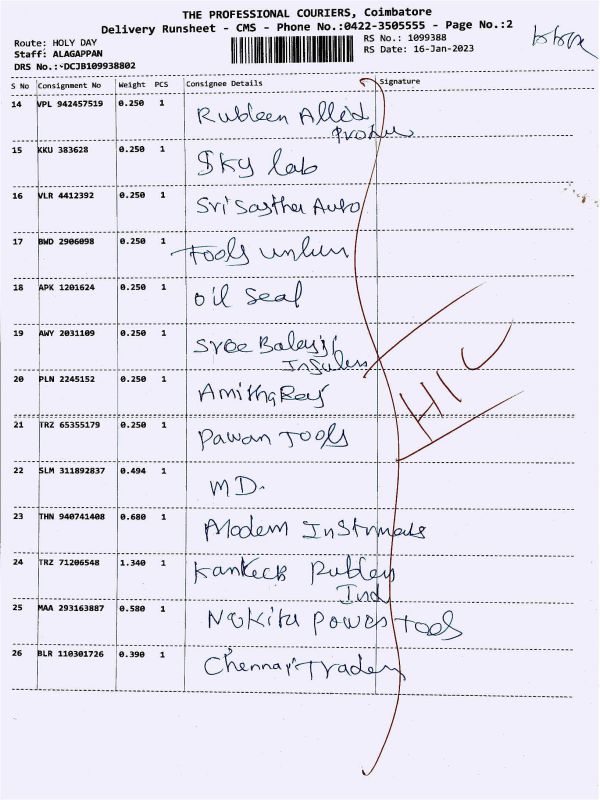 THE PROFESSIONAL COURIERS, Coimbatore
Delivery Runsheet - CMS - Phone No.:0422-3505555 - Page No.:2
Route: HOLY DAY
Staff: ALAGAPPAN
DRS No.:-DCJB109938802
RS No.: 1099388
RS Date: 16-Jan-2023
S No Consignment No Weight PCS Consignee Details Signature
14 VPL 942457519 0.250 1 Rubleen Allied
15 KKU 383628 0.250 1 Sky lab
16 VLR 4412392 0.250 1 Sri Sastha Auto
17 BWD 2906098 0.250 1 Tools
18 APK 1201624 0.250 1 Oil Seal
19 AWY 2031109 0.250 1 Sree Balaji
20 PLN 2245152 0.250 1
21 TRZ 65355179 0.250 1 Pawan Tools
22 SLM 311892837 0.494 1 M D.
23 THN 940741408 0.680 1 Modern
24 TRZ 71206548 1.340 1
Ind
25 MAA 293163887 0.580 1 Power Tools
26 BLR 110301726 0.390 1 Chennai Traders